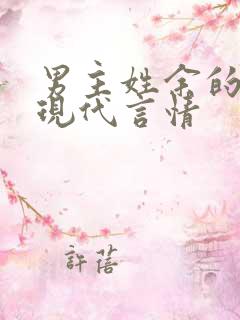 男主姓余的
現代言情
許蓓